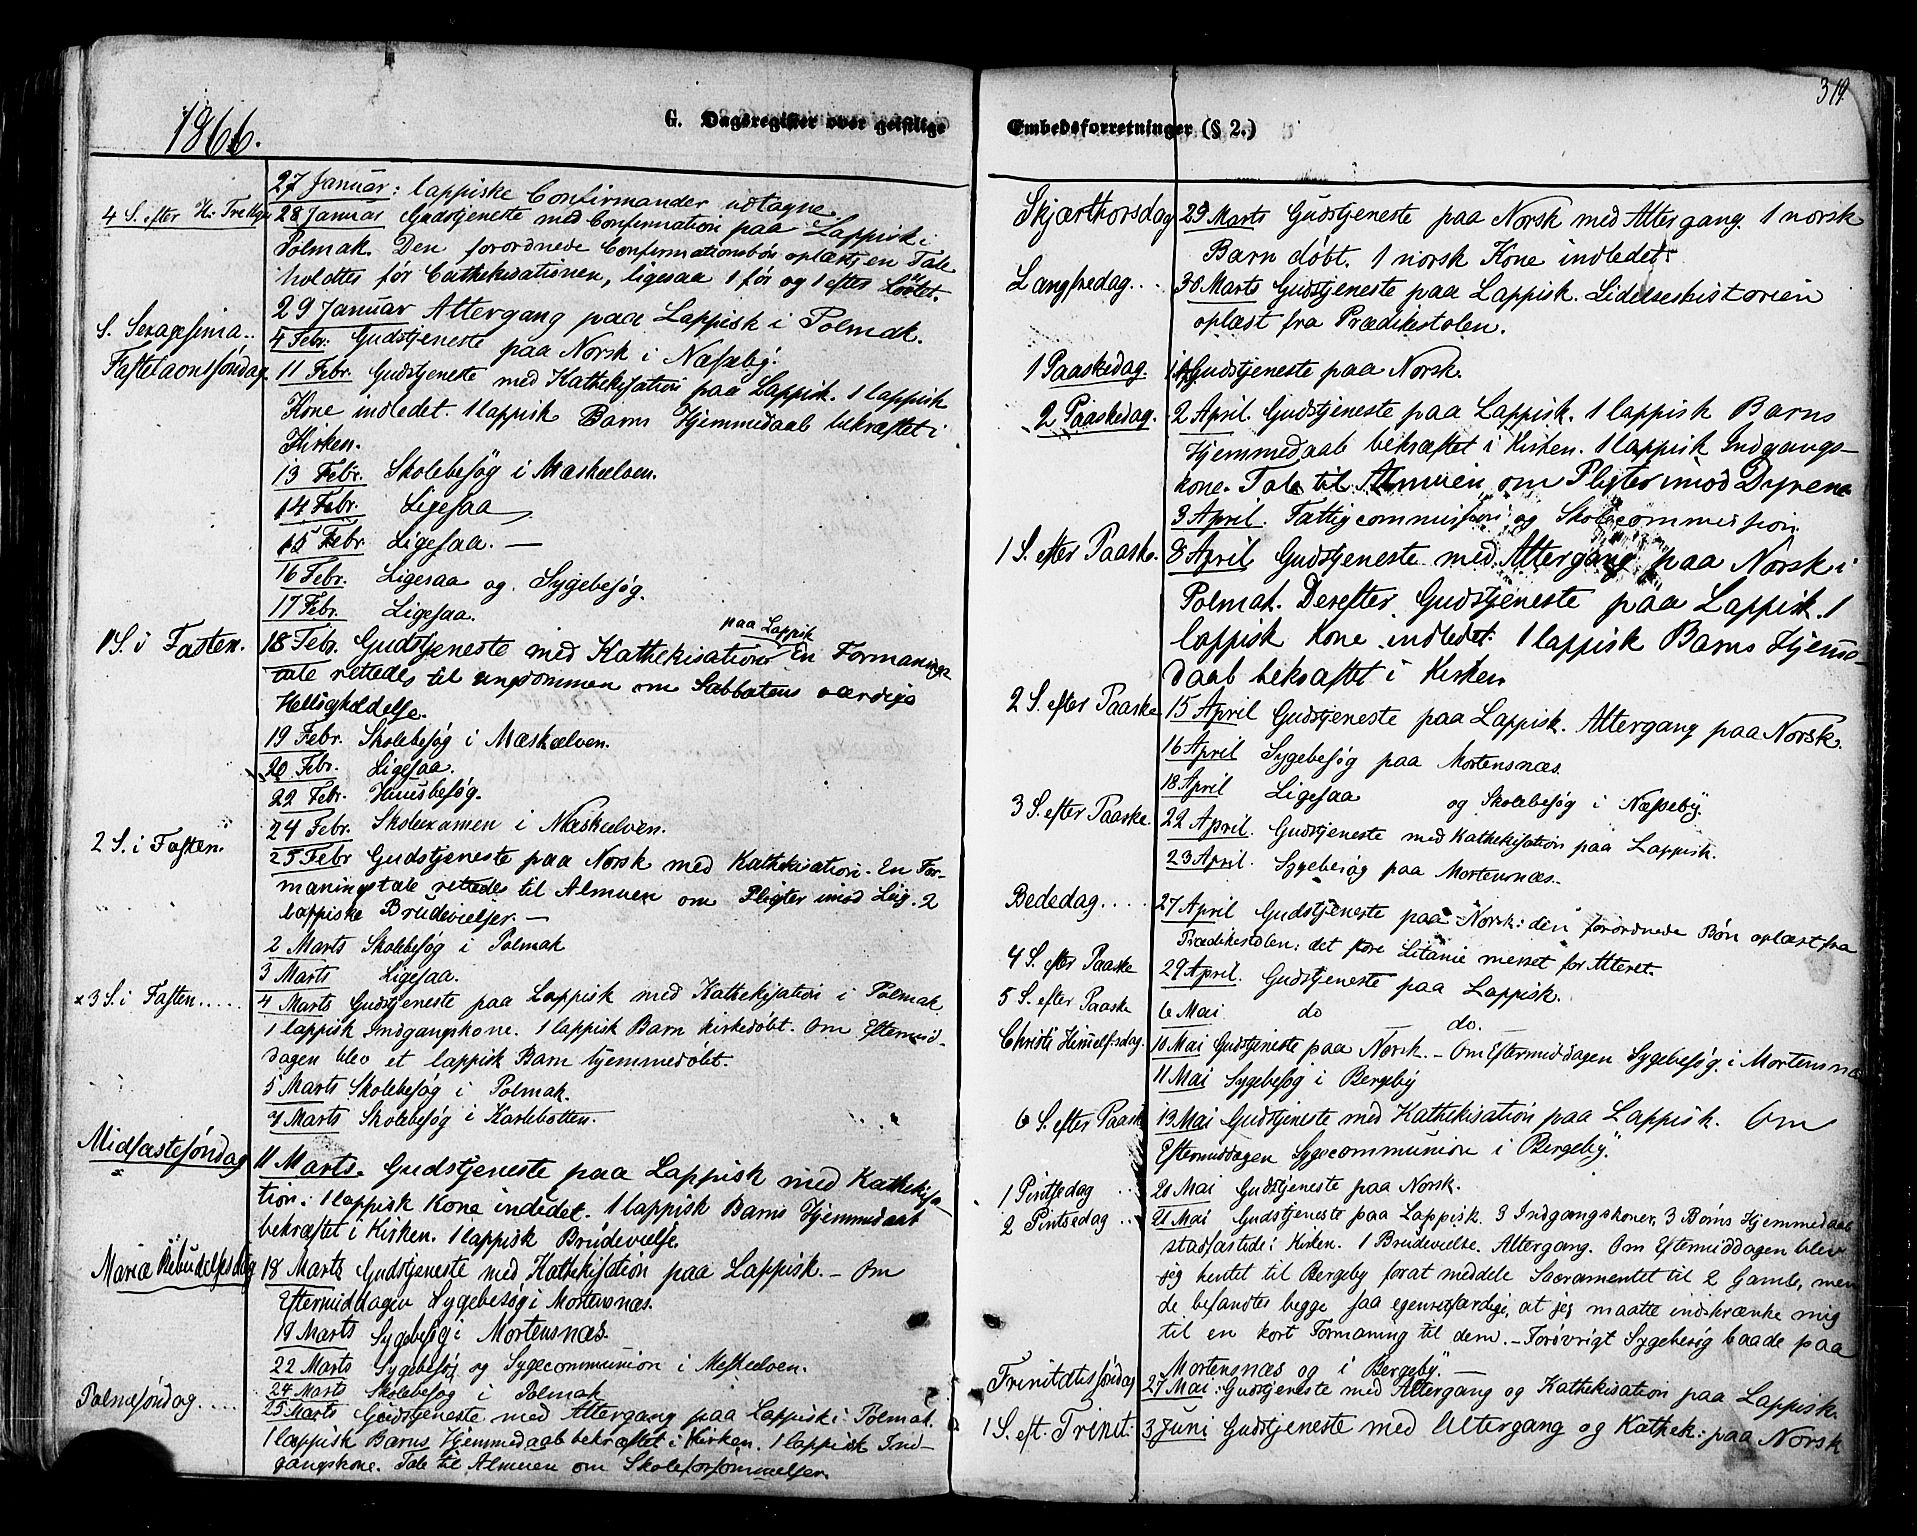 1866.
G. Dagsregister over geistlige
27 Januar: lappiske Confirmander udtagne
4 S. efter H. Tre Kgr 28 Januar Gudstjeneste med Confirmation paa Lappisk i
Polmak. Den forordnede Confirmationsbøn oplæst; en Tale
holdtes før Cathekisationen, ligesaa 1 før og 1 efter Løftet.
29 Januar Altergang paa Lappisk i Polmak.
S. Sexagesima.. 4 Febr: Gudstjeneste paa Norsk i Næsseby.
Fastelavnssøndag 11 Febr. Gudstjeneste med Kathekisation paa Lappisk. 1 lappisk
Kone indledet. 1 lappisk Barns Hjemmedaab bekræftet i
Kirken.
13 Febr. Skolebesøg i Mæskelven.
14 Febr. Ligesaa
15 Febr. Ligesaa. —
16 Febr. Ligesaa og Sygebesøg.
17 Febr. Ligesaa.
paa Lappisk
1 S. i Fasten. 18 Febr. Gudstjeneste med Kathekisation En Formanings
tale rettedes til Ungdommen om Sabbatens værdige
Helligholdelse.
19 Febr. Skolebesøg i Mæskelven.
20 Febr. Ligesaa.
22 Febr. Huusbesøg.
24 Febr. Skoleexamen i Mæskelven.
2 S. i Fasten. 25 Febr Gudstjeneste paa Norsk med Kathekisation. En For-
maningstale rettedes til Almuen om Pligter imod Lig. 2
lappiske Brudevielser. —
2 Marts Skolebesøg i Polmak
3 Marts Ligesaa.
x 3 S. i Fasten..... 4 Marts Gudstjeneste paa Lappisk med Kathekisation i Polmak
1 lappisk Indgangskone. 1 lappisk Barn kirkedøbt. Om Eftermid-
dagen blev et lappisk Barn hjemmedøbt.
5 Marts Skolebesøg i Polmak.
7 Marts Skolebesøg i Karlebotten.
Midfastesøndag 11 Marts. Gudstjeneste paa Lappisk med Kathekisa-
tion: 1 lappisk Kone indledet. 1 lappisk Barns Hjemmedaab
bekræftet i Kirken. 1 lappisk Brudevielse.
Mariæ Bebudelsesdag 18 Marts Gudstjeneste med Kathekisation paa Lappisk. — Om
Eftermiddagen Sygebesøg i Mortensnæs.
19 Marts Sygebesøg i Mortensnæs.
22 Marts Sygebesøg og Sygecommunion i Meskelven.
24 Marts Skolebesøg i Polmak
Palmesøndag..... 25 Marts Gudstjeneste med Altergang paa Lappisk i Polmak.
1 lappisk Barns Hjemmedaab bekræftet i Kirken. 1 lappisk Ind-
gangskone. Tale til Almuen om Skoleforsømmelser.
319
Embedsforretninger (§ 2.)
Skjærthorsdag 29 Marts Gudstjeneste paa Norsk med Altergang. 1 norsk
Barn døbt. 1 norsk Kone indledet.
Langfredag.... 30 Marts Gudstjeneste paa Lappisk. Lidelseshistorien
oplæst fra Prædikestolen.
1 Paaskedag. Gudstjeneste paa Norsk.
2 Paaskedag. 2 April. Gudstjeneste paa Lappisk. 1 lappisk Barns
Hjemmedaab bekræftet i Kirken. 1 lappisk Indgangs-
kone. Tale til Almuen om Pligter imod Dyrene
3 April. Fattigcommission og Skolecommission
1 S. efter Paaske. 8 April Gudstjeneste med Altergang paa Norsk i
Polmak. Derefter Gudstjeneste paa Lappisk. 1
lappisk Kone indledet. 1 lappisk Barns Hjemme-
daab bekræftet i Kirken
2 S. efter Paaske 15 April Gudstjeneste paa Lappisk. Altergang paa Norsk.
16 April Sygebesøg paa Mortensnæs.
18 April Ligesaa og Skolebesøg i Næsseby.
3 S. efter Paaske. 22 April. Gudstjeneste med Kathekisation paa Lappisk.
23 April. Sygebesøg paa Mortensnæs.
Bededag..... 27 April Gudstjeneste paa Norsk: den forordnede Bøn oplæst fra
Prædikestolen: det store Litanie messet for Alteret.
4 S. efter Paaske 29 April. Gudstjeneste paa Lappisk.
5 S. efter Paaske 6 Mai do do.
Christi Himelf:sdag. 10 Mai Gudstjeneste paa Norsk. — Om Eftermiddagen Sygebesøg i Mortensnæs
11 Mai Sygebesøg i Bergeby
6 S. efter Paaske 13 Mai Gudstjeneste med Kathekisation paa Lappisk. Om
Eftermiddagen Sygecommunion i Bergeby.
1 Pintsedag .. 20 Mai Gudstjeneste paa Norsk.
2 Pintsedag .. 21 Mai Gudstjeneste paa Lappisk. 3 Indgangskoner, 3 Børns Hjemmedaab
stadfæstede i Kirken. 1 Brudevielse. Altergang. Om Eftermiddagen blev
jeg hentet til Bergeby forat meddele Sacramentet til 2 Gamle, men
de befandtes begge saa egenretfærdige, at jeg maatte indskrænke mig
til en kort Formaning til dem. — Forøvrigt Sygebesøg baade paa
Mortensnæs og i Bergeby. —
Trinitatissøndag 27 Mai: Gudstjeneste med Altergang og Kathekisation paa Lappisk.
1 S. eft. Trinit. 3 Juni Gudstjeneste med Altergang og Kathek: paa Norsk